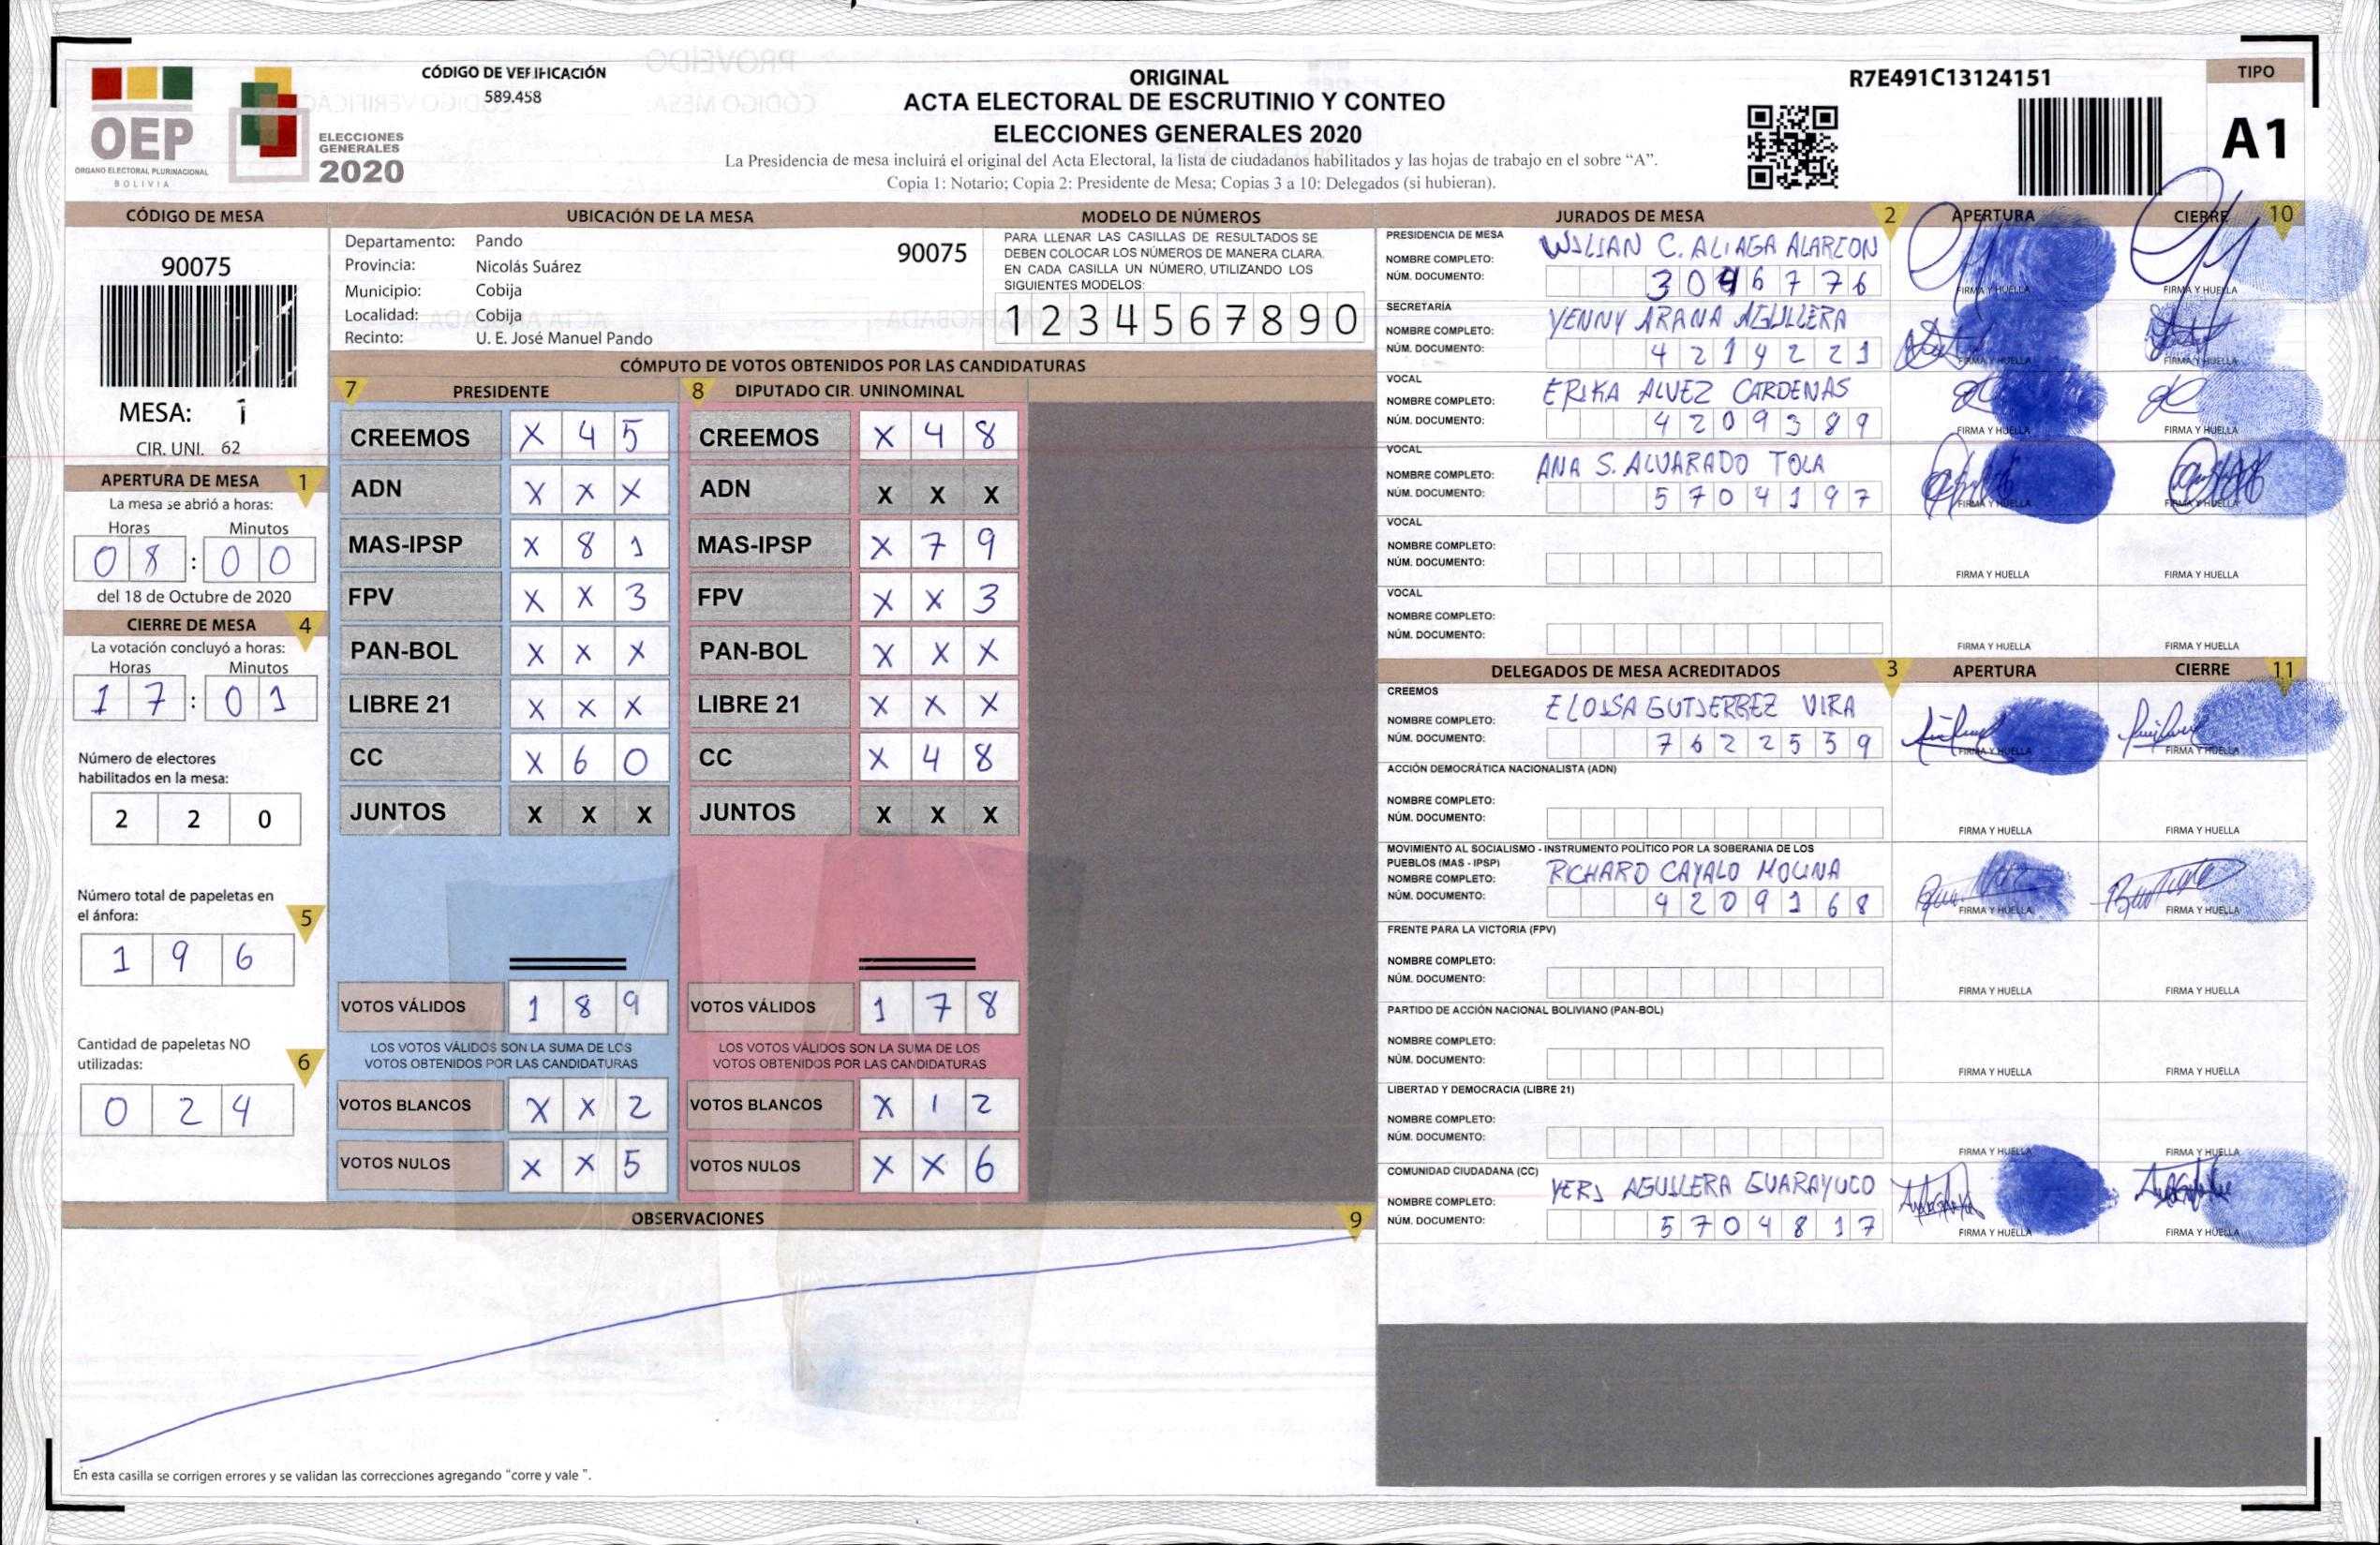 CÓDIGO DE VERIFICACIÓN
589.458
OEP
ÓRGANO ELECTORAL PLURINACIONAL
BOLIVIA
ELECCIONES
GENERALES
2020
ORIGINAL
ACTA ELECTORAL DE ESCRUTINIO Y CONTEO
ELECCIONES GENERALES 2020
La Presidencia de mesa incluirá el original del Acta Electoral, la lista de ciudadanos habilitados y las hojas de trabajo en el sobre “A”.
Copia 1: Notario; Copia 2: Presidente de Mesa; Copias 3 a 10: Delegados (si hubieran).
R7E491C13124151
TIPO
A1
CÓDIGO DE MESA
90075
MESA: 1
CIR. UNI. 62
UBICACIÓN DE LA MESA
Departamento: Pando
90075
Provincia: Nicolás Suárez
Municipio: Cobija
Localidad: Cobija
Recinto: U. E. José Manuel Pando
MODELO DE NÚMEROS
PARA LLENAR LAS CASILLAS DE RESULTADOS SE
DEBEN COLOCAR LOS NÚMEROS DE MANERA CLARA.
EN CADA CASILLA UN NÚMERO, UTILIZANDO LOS
SIGUIENTES MODELOS:
1 2 3 4 5 6 7 8 9 0
APERTURA DE MESA 1
La mesa se abrió a horas:
Horas Minutos
0 8 : 0 0
del 18 de Octubre de 2020
CIERRE DE MESA 4
La votación concluyó a horas:
Horas Minutos
1 7 : 0 1
Número de electores
habilitados en la mesa:
2 2 0
Número total de papeletas en
el ánfora: 5
1 9 6
Cantidad de papeletas NO
utilizadas: 6
0 2 4
CÓMPUTO DE VOTOS OBTENIDOS POR LAS CANDIDATURAS
7 PRESIDENTE
CREEMOS X 4 5
ADN X X X
MAS-IPSP X 8 1
FPV X X 3
PAN-BOL X X X
LIBRE 21 X X X
CC X 6 0
JUNTOS X X X
VOTOS VÁLIDOS 1 8 9
LOS VOTOS VÁLIDOS SON LA SUMA DE LOS
VOTOS OBTENIDOS POR LAS CANDIDATURAS
VOTOS BLANCOS X X 2
VOTOS NULOS X X 5
8 DIPUTADO CIR. UNINOMINAL
CREEMOS X 4 8
ADN X X X
MAS-IPSP X 7 9
FPV X X 3
PAN-BOL X X X
LIBRE 21 X X X
CC X 4 8
JUNTOS X X X
VOTOS VÁLIDOS 1 7 8
LOS VOTOS VÁLIDOS SON LA SUMA DE LOS
VOTOS OBTENIDOS POR LAS CANDIDATURAS
VOTOS BLANCOS X 1 2
VOTOS NULOS X X 6
OBSERVACIONES 9
En esta casilla se corrigen errores y se validan las correcciones agregando “corre y vale ”.
JURADOS DE MESA 2 APERTURA CIERRE 10
PRESIDENCIA DE MESA
NOMBRE COMPLETO: WILIAN C. ALIAGA ALARCON
NÚM. DOCUMENTO: 3 0 4 6 7 7 6
FIRMA Y HUELLA FIRMA Y HUELLA
SECRETARÍA
NOMBRE COMPLETO: YENNY ARANA AGUILERA
NÚM. DOCUMENTO: 4 2 1 4 2 2 1
FIRMA Y HUELLA FIRMA Y HUELLA
VOCAL
NOMBRE COMPLETO: ERIKA ALVEZ CARDENAS
NÚM. DOCUMENTO: 4 2 0 9 3 8 9
FIRMA Y HUELLA FIRMA Y HUELLA
VOCAL
NOMBRE COMPLETO: ANA S. ALVARADO TOLA
NÚM. DOCUMENTO: 5 7 0 4 1 9 7
FIRMA Y HUELLA FIRMA Y HUELLA
VOCAL
NOMBRE COMPLETO:
NÚM. DOCUMENTO:
FIRMA Y HUELLA FIRMA Y HUELLA
VOCAL
NOMBRE COMPLETO:
NÚM. DOCUMENTO:
FIRMA Y HUELLA FIRMA Y HUELLA
DELEGADOS DE MESA ACREDITADOS 3 APERTURA CIERRE 11
CREEMOS
NOMBRE COMPLETO: ELOISA GUTIERREZ VIRA
NÚM. DOCUMENTO: 7 6 2 2 5 5 9
FIRMA Y HUELLA FIRMA Y HUELLA
ACCIÓN DEMOCRÁTICA NACIONALISTA (ADN)
NOMBRE COMPLETO:
NÚM. DOCUMENTO:
FIRMA Y HUELLA FIRMA Y HUELLA
MOVIMIENTO AL SOCIALISMO - INSTRUMENTO POLÍTICO POR LA SOBERANIA DE LOS
PUEBLOS (MAS - IPSP)
NOMBRE COMPLETO: RICHARD CAYALO MOLINA
NÚM. DOCUMENTO: 4 2 0 9 1 6 8
FIRMA Y HUELLA FIRMA Y HUELLA
FRENTE PARA LA VICTORIA (FPV)
NOMBRE COMPLETO:
NÚM. DOCUMENTO:
FIRMA Y HUELLA FIRMA Y HUELLA
PARTIDO DE ACCIÓN NACIONAL BOLIVIANO (PAN-BOL)
NOMBRE COMPLETO:
NÚM. DOCUMENTO:
FIRMA Y HUELLA FIRMA Y HUELLA
LIBERTAD Y DEMOCRACIA (LIBRE 21)
NOMBRE COMPLETO:
NÚM. DOCUMENTO:
FIRMA Y HUELLA FIRMA Y HUELLA
COMUNIDAD CIUDADANA (CC)
NOMBRE COMPLETO: YERI AGUILERA GUARAYUCO
NÚM. DOCUMENTO: 5 7 0 4 8 1 7
FIRMA Y HUELLA FIRMA Y HUELLA